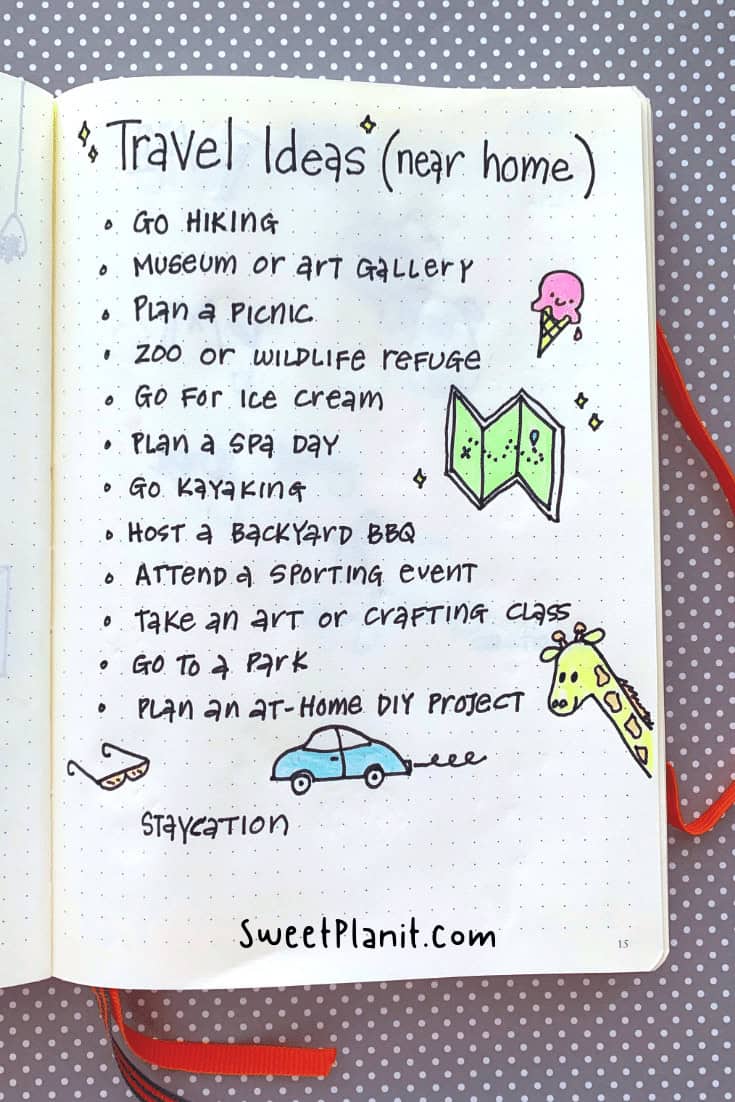 Travel Ideas (near home)
• GO HIKING
• MUSEUM Or arT GaLLerY
• PLan a PICNIC
• ZOO Or WILDLIFe reFUGe
• GO FOr ICe Cream
• PLan a SPa DaY
• GO KaYaKING
• HOST a BaCKYarD BBQ
• ATTenD a SPOrTING evenT
• Take an arT or CraFTING CLass
• GO TO a Park
• PLan an aT-Home DIY ProJecT
STaYCaTION
SweetPlanit.com
15